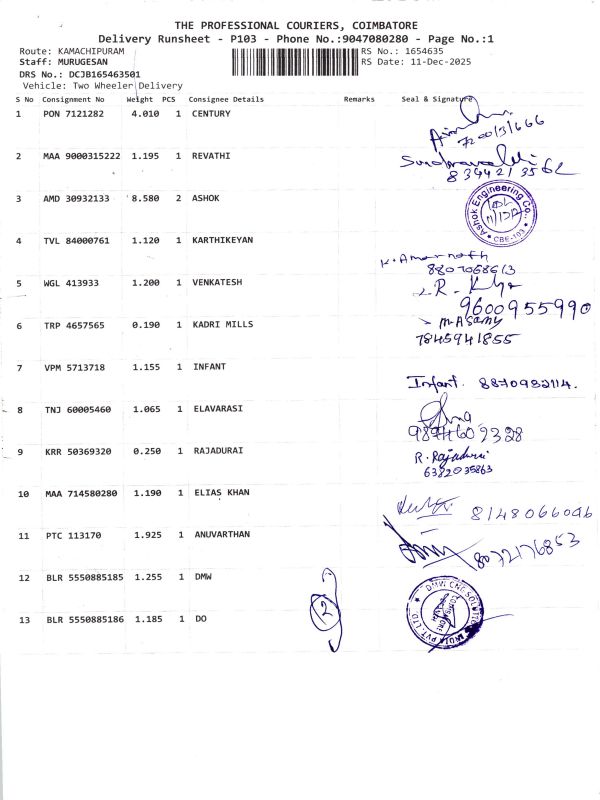 THE PROFESSIONAL COURIERS, COIMBATORE
Delivery Runsheet - P103 - Phone No.:9047080280 - Page No.:1
Route: KAMACHIPURAM RS No.: 1654635
Staff: MURUGESAN RS Date: 11-Dec-2025
DRS No.: DCJB165463501
Vehicle: Two Wheeler Delivery
S No Consignment No Weight PCS Consignee Details Remarks Seal & Signature
1 PON 7121282 4.010 1 CENTURY
2 MAA 9000315222 1.195 1 REVATHI
3 AMD 30932133 8.580 2 ASHOK
Ashok Engineering Co., CBE-103
4 TVL 84000761 1.120 1 KARTHIKEYAN
K. Amarnath
8807068613
5 WGL 413933 1.200 1 VENKATESH
9600955990
6 TRP 4657565 0.190 1 KADRI MILLS
M. ASamy
7845941855
7 VPM 5713718 1.155 1 INFANT
Infant. 8870982114.
8 TNJ 60005460 1.065 1 ELAVARASI
9 KRR 50369320 0.250 1 RAJADURAI
R. Rajadurai
6382035863
10 MAA 714580280 1.190 1 ELIAS KHAN
8148066046
11 PTC 113170 1.925 1 ANUVARTHAN
8072176853
12 BLR 5550885185 1.255 1 DMW
2
13 BLR 5550885186 1.185 1 DO
DMW CNC SOLUTIONS INDIA PVT. LTD.